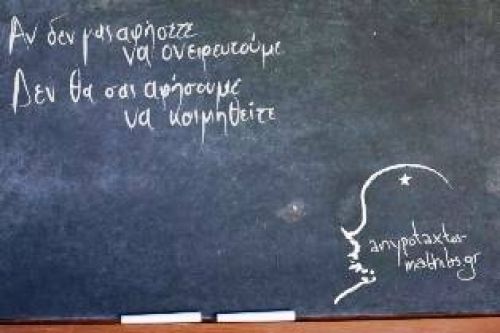 Αν δεν μας αφήσετε
να ονειρευτούμε
Δεν θα σας αφήσουμε
να κοιμηθείτε
anypotaxtos-
mathitis.gr